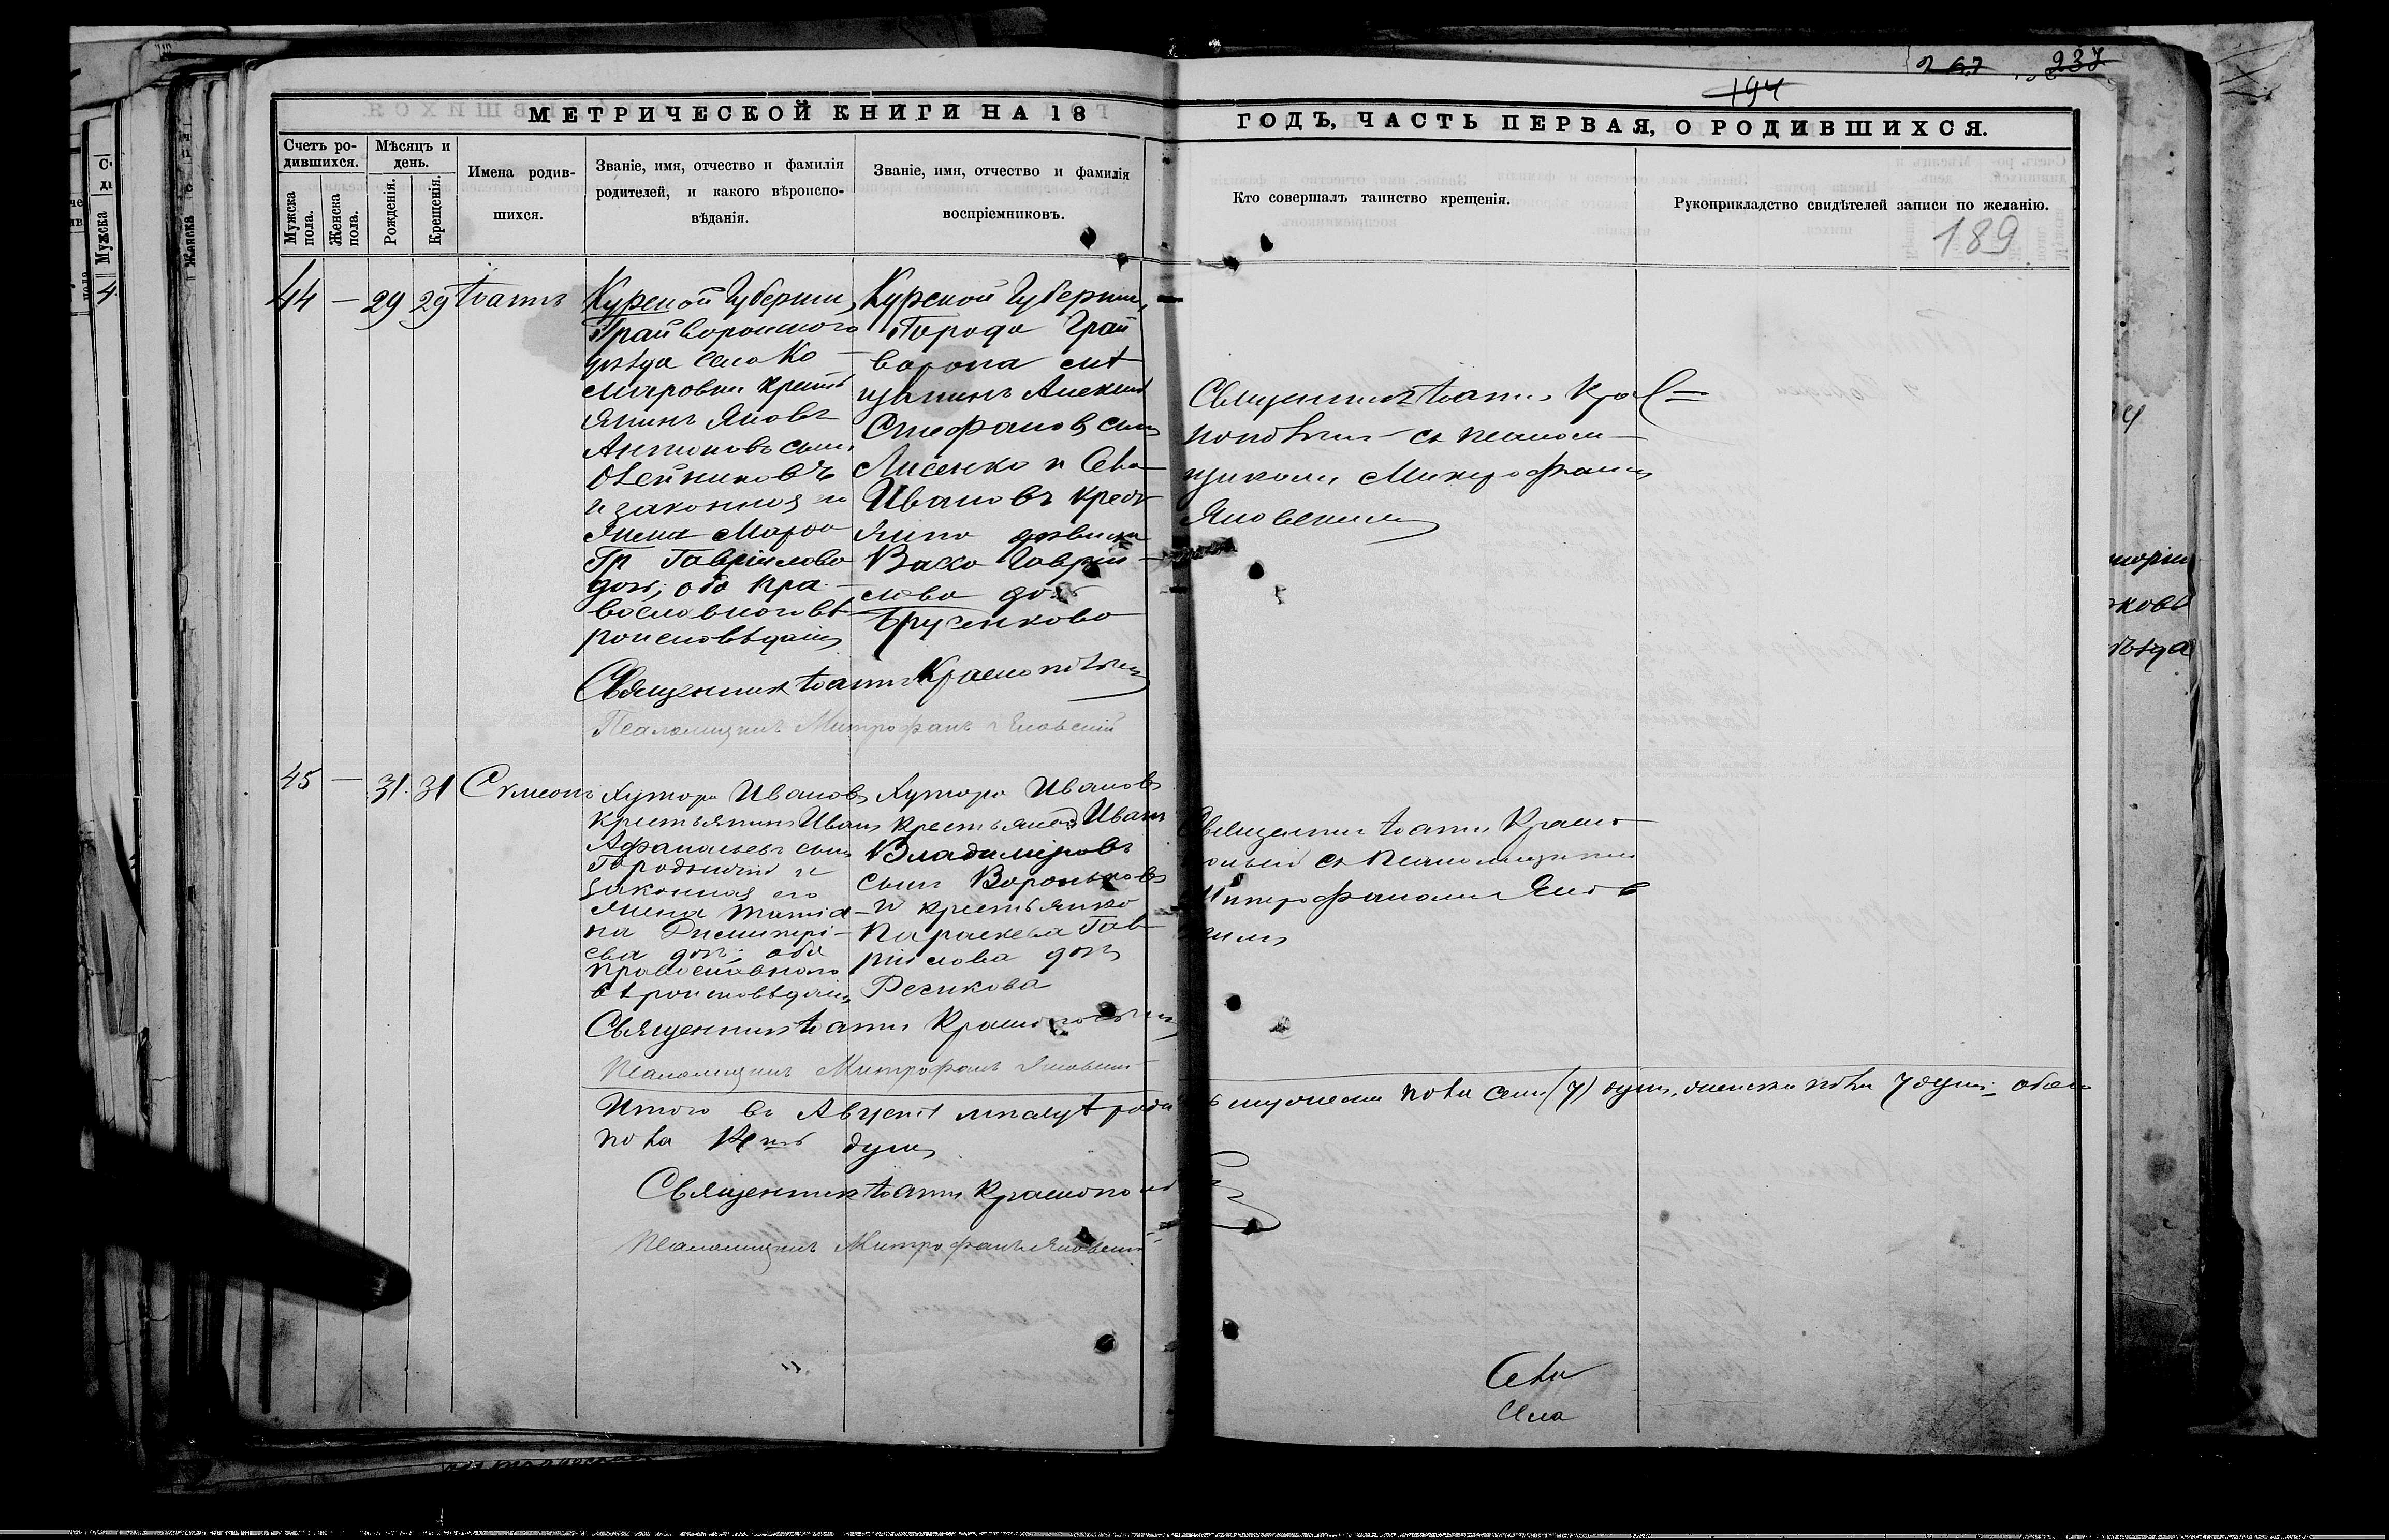 267 237
194
МЕТРИЧЕСКОЙ КНИГИ НА 18
ГОДЪ, ЧАСТЬ ПЕРВАЯ, О РОДИВШИХСЯ.
Счетъ ро-
дившихся.
Мужска
пола.
Женска
пола.
Мѣсяцъ и
день.
Рожденія.
Крещенія.
Имена родив-
шихся.
Званіе, имя, отчество и фамилія
родителей, и какого вѣроиспо-
вѣданія.
Званіе, имя, отчество и фамилія
воспріемниковъ.
Кто совершалъ таинство крещенія.
Рукоприкладство свидѣтелей записи по желанію.
189
44 — 29 29 Іоаннъ
Курской Губерніи,
Грайворонскаго
уѣзда села Ко-
Яковъ
Антоновъ сынъ
Олейниковъ
и законная его
жена Марѳа
Гавріилова
дочь; оба пра-
вославнаго вѣ-
роисповѣданія
Курской Губерніи,
Города Грай
ворона мѣ
щанинъ Алексѣй
Стефановъ сынъ
Лисенко и
Ивановъ крест
Гавріи-
лова дочь
Священникъ Іоаннъ Краснопольскій
Псаломщикъ Митрофанъ Яновскій
Священникъ Іоаннъ Крас=
нопольскій съ псалом-
щикомъ Митрофаномъ
Яновскимъ
45 — 31 31 Сѵмеонъ
Хутора Ивановъ
крестьянинъ Иванъ
Афанасьевъ сынъ
Городній и
законная его
жена Татіа-
на Димитрі-
ева дочь; оба
православнаго
вѣроисповѣданія
Хутора Ивановъ
крестьянинъ Иванъ
Владиміровъ
сынъ Вороньковъ
и крестьянка
Параскева Гав-
ріилова дочь
Резникова
Священникъ Іоаннъ Краснопольскій
Псаломщикъ Митрофанъ Яновскій
Священникъ Іоаннъ Красно-
польскій съ псаломщикомъ
Митрофаномъ Янов
скимъ
Итого въ Августѣ мѣсяцѣ роди
мужеска пола семь (7) душъ, женска пола 7 душъ; обоего
пола 14ть душъ
Священникъ Іоаннъ Краснопольскій
Псаломщикъ Митрофанъ Яновскій